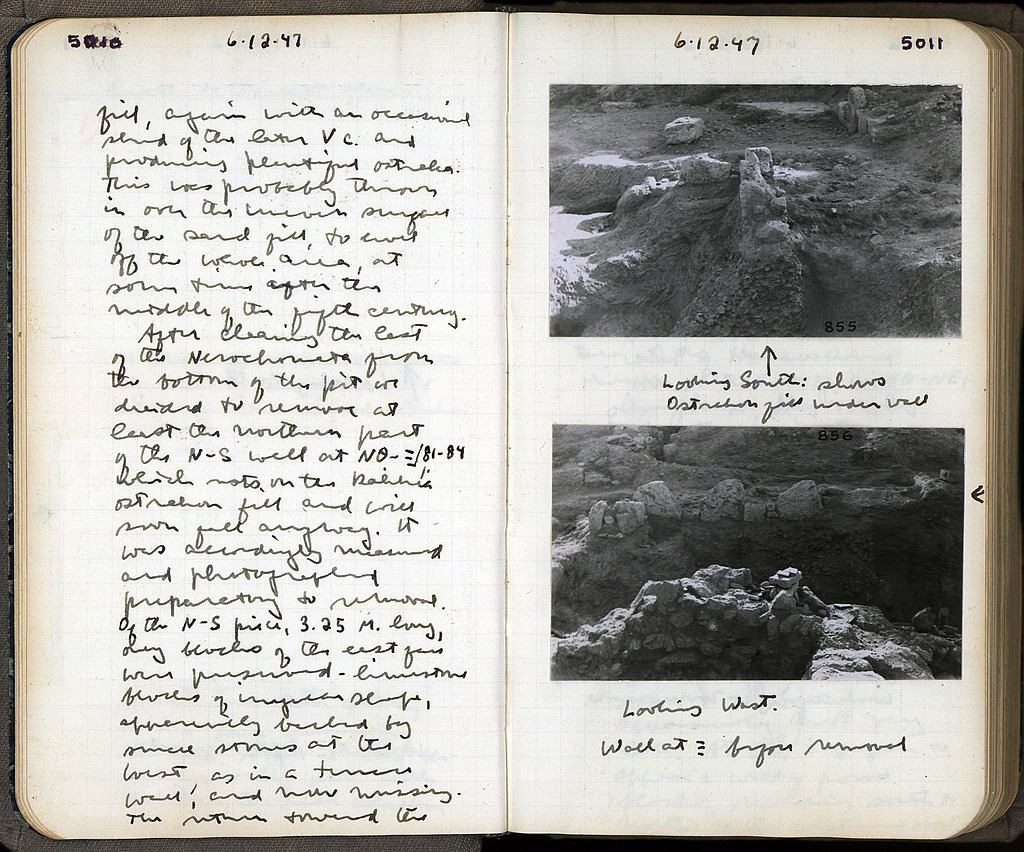 5010
6·12·47
fill, again with an occasional
sherd of the later V c. and
producing plentiful ostraka.
This was probably thrown
in over the uneven surface
of the sand fill, to level
off the whole area, at
some time after the
middle of the fifth century.
After clearing the last
of the Nerochomata from
the bottom of the pit we
decided to remove at
least the northern part
of the N-S wall at ΝΘ-Ξ/81-84
which rests on the
ostrakon fill and will
soon fall anyway. It
was accordingly measured
and photographed
preparatory to removal.
Of the N-S piece, 3.25 M. long,
only blocks of the east face
were preserved - limestone
blocks of irregular shape,
apparently backed by
smaller stones at the
West, as in a terrace
wall, and now missing.
The return toward the
6·12·47
5011
855
↑
Looking South: shows
Ostrakon fill under wall
856
←
Looking West.
Wall at Ξ before removal